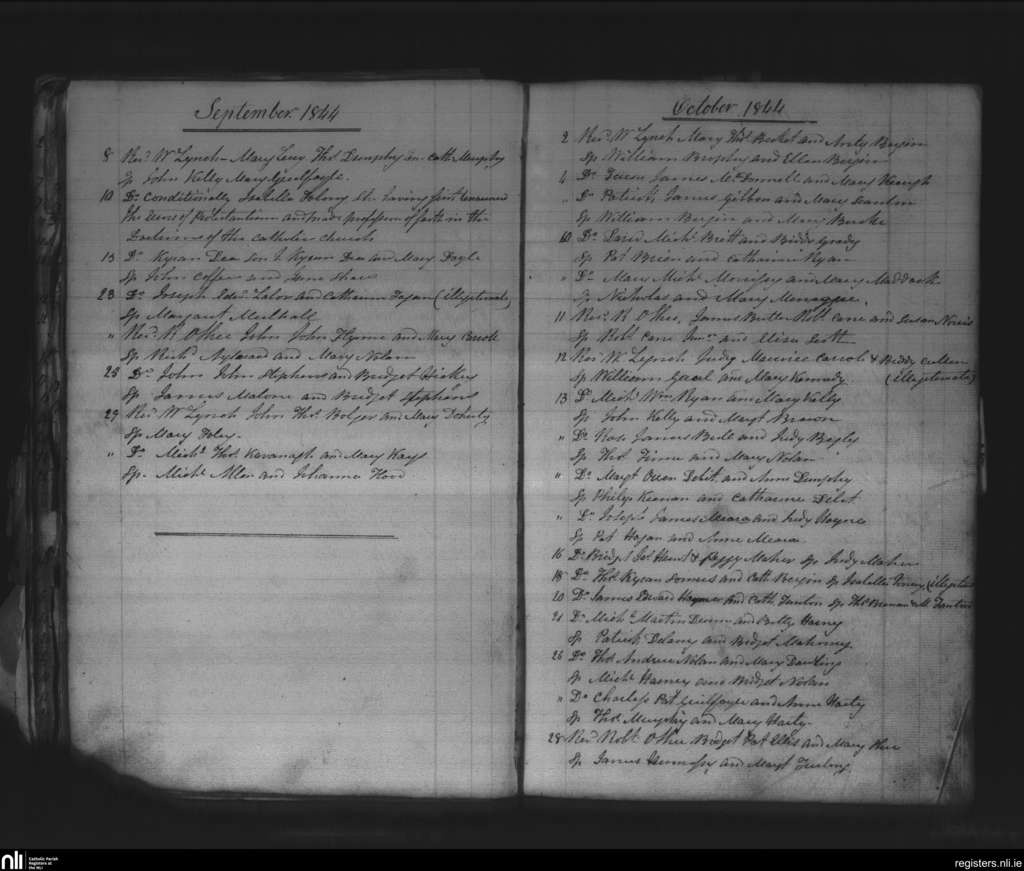 September 1844
8 Revd W Lynch Mary Thos Dunphy Cath Murphy
Sp John Kelly Mary Guilfoyle
10 Do Conditionally Isabella having first renounced
the of Protestantism and made profession of faith in the
doctrines of the Catholic Church
13 Do Kyran Dea son to Kyran Dea and Mary Doyle
Sp John and
23 Do Joseph Lalor and Catherine (illegitimate)
Sp Margaret Mulhall
" Revd R OShee John John Flynne and Mary Carroll
Sp Richd Aylward and Mary Nolan
25 Do John John Stephens and Bridget Hickey
Sp James Malone and Bridget Stephens
29 Revd W Lynch John Thos Bolger and Mary Doherty
Sp Mary Foley
" Do Michl Thos Kavanagh and Mary Keefe
Sp. Michl Allen and Johanna
October 1844
2 Revd W Lynch Mary Thos and Andy Bergin
Sp William Brophy and Ellen Bergin
4 Do James McDonnell and Mary Keough
" Do Patrick James Gibbon and Mary Scanlon
Sp William Bergin and Mary Burke
10 Do David Michl Brett and Biddy Grady
Sp Pat Brien and Catharine Ryan
" Do Mary Michl Morrissey and Mary Maddock
Sp Nicholas and Mary
11 Revd R OShee, James Butler Robt Cane and Susan Norris
Sp Robt Cane Junr and Eliza Scott
12 Revd W Lynch Judy Maurice Carroll & Biddy Cullen
Sp William and Mary Kennedy (illegitimate)
13 Do Michl Wm Ryan and Mary Kelly
Sp John Kelly and Margt Brown
" Do Rose James and Judy Begly
Sp Thos Finn and Mary Nolan
" Do Margt Owen Delit and Anne Dunphy
Sp Philip Keenan and Catharine Delit
" Do Joseph James Meara and Judy Hayne
Sp Pat Hogan and Anne Meara
16 Do Bridgt Jas & Peggy Maher Sp Judy Maher
18 Do Thos Kyran Somers and Cath Bergin Sp Isabella (illegitimate
20 Do James Edward and Cath Fanton Sp Thos Brenan & M Fanton
21 Do Michl Martin Dunn and Betty
Sp Patrick Delany and Bridget Mahony
26 Do Thos Andrew Nolan and Mary Dowling
Sp Michl and Bridget Nolan
" Do Charles Pat Guilfoyle and Anne Harty
Sp Thos Murphy and Mary Harty
28 Revd Robt OShee Bridget Pat Ellis and Mary
Sp James Hennessy and Margt
nli Catholic Parish
Registers at
the NLI
registers.nli.ie